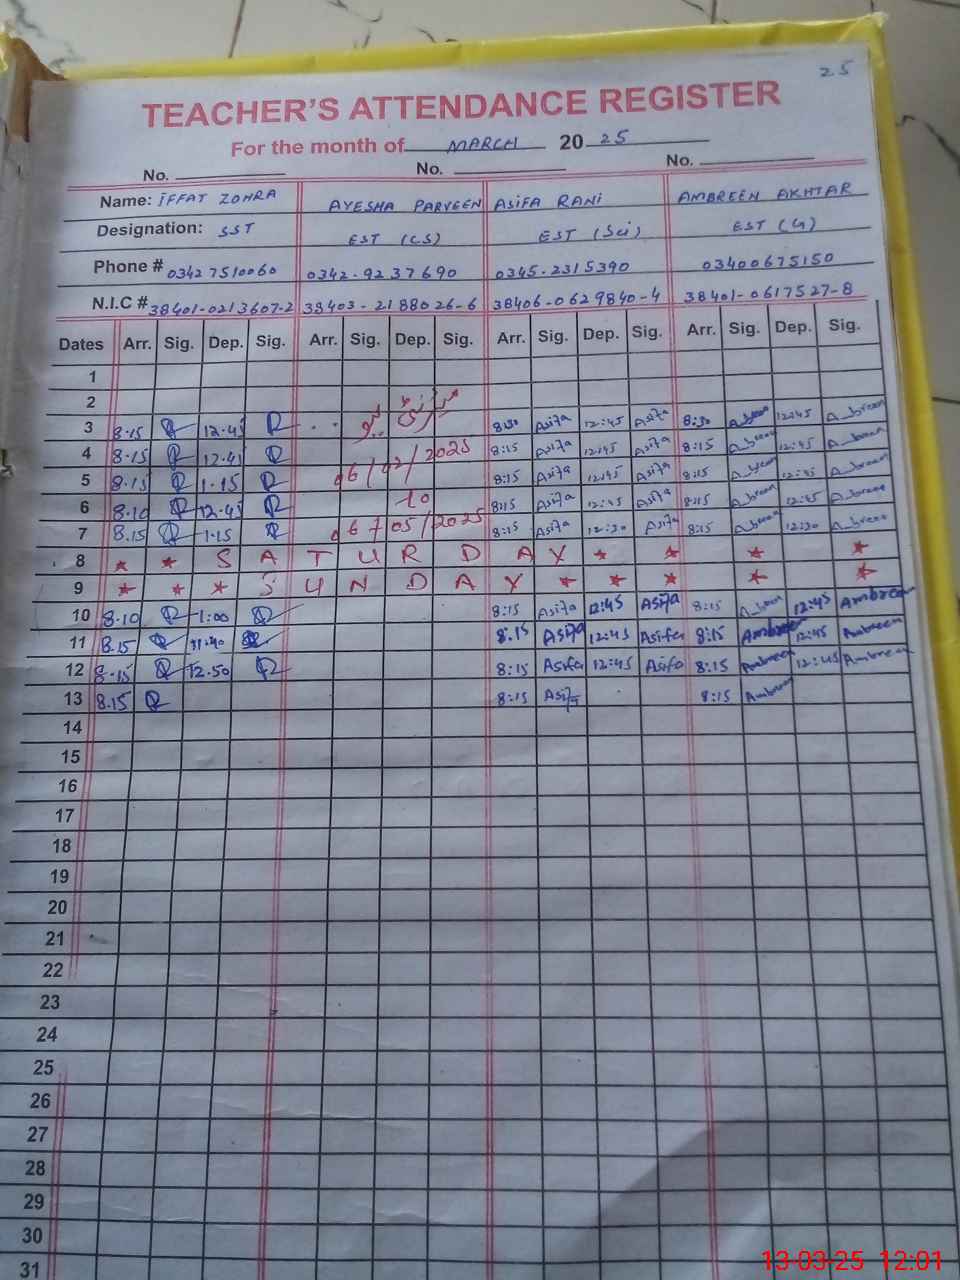 25
TEACHER'S ATTENDANCE REGISTER
For the month of MARCH 20 25
No. No. No.
Name: IFFAT ZOHRA AYESHA PARVEEN ASIFA RANI AMBREEN AKHTAR
Designation: SST EST (CS) EST (Sci) EST (G)
Phone # 0342 7510060 0342-9237690 0345-2315390 03400675150
N.I.C # 38401-0213607-2 38403-2188026-6 38406-0629840-4 38401-0617527-8
Dates Arr. Sig. Dep. Sig. Arr. Sig. Dep. Sig. Arr. Sig. Dep. Sig. Arr. Sig. Dep. Sig.
1
2
3 8.15 12.45 8:30 Asifa 12:45 Asifa 8:30 Ambreen 12:45 Ambreen
4 8.15 12.45 06/02/2025 8:15 Asifa 12:45 Asifa 8:15 Ambreen 12:45 Ambreen
5 8.15 1.15 8:15 Asifa 12:45 Asifa 8:15 Ambreen 12:45 Ambreen
6 8.10 12.45 to 8:15 Asifa 12:45 Asifa 8:15 Ambreen 12:45 Ambreen
7 8.15 1.15 05/2025 8:15 Asifa 12:30 Asifa 8:15 Ambreen 12:30 Ambreen
8 * * S A T U R D A Y * * * *
9 * * * S U N D A Y * * * * *
10 8.10 1:00 8:15 Asifa 12:45 Asifa 8:15 Ambreen 12:45 Ambreen
11 8.15 11.40 8:15 Asifa 12:45 Asifa 8:15 Ambreen 12:45 Ambreen
12 8.15 12.50 8:15 Asifa 12:45 Asifa 8:15 Ambreen 12:45 Ambreen
13 8.15 8:15 Asifa 8:15 Ambreen
14
15
16
17
18
19
20
21
22
23
24
25
26
27
28
29
30
31
13-03-25 12:01